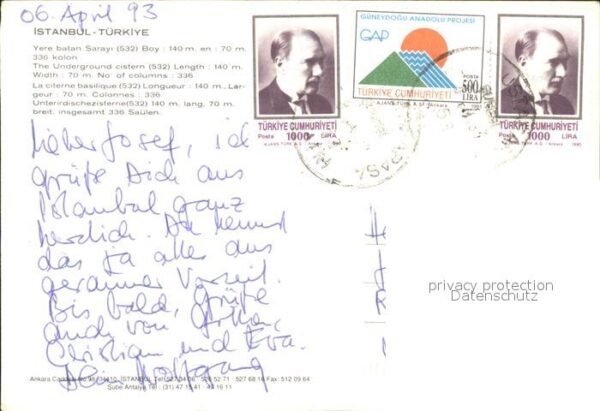 06. April 93
İSTANBUL - TÜRKİYE
Yere batan Sarayı (532) Boy : 140 m. en : 70 m.
336 kolon
The Underground cistern (532) Length : 140 m.
Width : 70 m. No of columns : 336
La citerne basilique (532) Longueur : 140 m., Lar-
geur : 70 m. Colonnes . 336
Unterirdischezisferne(532) 140 m. lang, 70 m.
breit. insgesamt 336 Saülen.
GÜNEYDOĞU ANADOLU PROJESİ
GAP
POSTA
500
LİRA
TÜRKİYE CUMHURİYETİ
AJANS TÜRK A.Ş. Ankara
TÜRKİYE CUMHURİYETİ
Posta 1000 LİRA
AJANS TÜRK A.Ş. Ankara 1990
TÜRKİYE CUMHURİYETİ
Posta 1000 LİRA
AJANS TÜRK A.Ş. Ankara 1990
Lieber Josef, ich
grüße Dich aus
Istanbul ganz
herzlich. Du kennst
das ja alles aus
geraumer Vorzeit.
Bis bald, Grüße
auch von
Christian und Eva.
Dein Wolfgang
privacy protection
Datenschutz
Ankara Caddesi No 98 34410 - İSTANBUL Tel 527 527 68 16 Fax : 512 09 64
Sube Antalya Tel : (31) 47 13 41 - 16 11